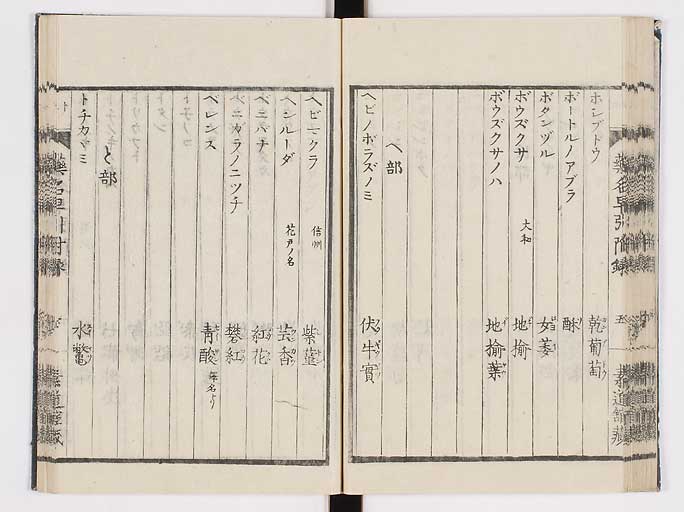 藥名早引附録 五
ホシブドウ 乾葡萄
ボートルノアブラ 酥
ボタンヅル 女萎
ボウズクサ 大和 地揄
ボウズクサノハ 地揄葉
へ部
ヘビノボラズノミ 伏牛實
ヘビマクラ 信州 紫菫
ヘシルーダ 花戸ノ名 芸香
ベニバナ 紅花
ベニガラノニツチ 礬紅
ベレンス 青酸
と部
トチカヾミ 水鼈
藥名早引附録